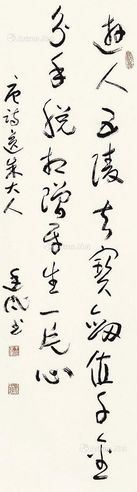 遊人五陵去寶劍值千金
分手脫相贈平生一片心
唐詩送朱大入